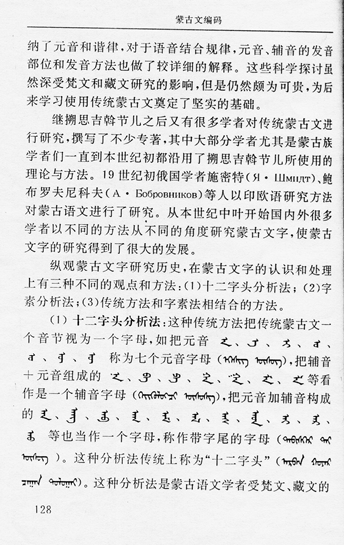 蒙古文编码
纳了元音和谐律,对于语音结合规律,元音、辅音的发音
部位和发音方法也做了较详细的解释。这些科学探讨虽
然深受梵文和藏文研究的影响,但是仍然颇为可贵,为后
来学习使用传统蒙古文奠定了坚实的基础。
继搠思吉斡节儿之后又有很多学者对传统蒙古文进
行研究,撰写了不少专著,其中大部分学者尤其是蒙古族
学者们一直到本世纪初都沿用了搠思吉斡节儿所使用的
理论与方法。19世纪初俄国学者施密特(Я·Шмидт)、鲍
布罗夫尼科夫(А·Бобровников)等人以印欧语研究方法
对蒙古语文进行了研究。从本世纪中叶开始国内外很多
学者以不同的方法从不同的角度研究蒙古文字,使蒙古
文字的研究得到了很大的发展。
纵观蒙古文字研究历史,在蒙古文字的认识和处理
上有三种不同的观点和方法:(1)十二字头分析法;(2)字
素分析法;(3)传统方法和字素法相结合的方法。
(1) 十二字头分析法:这种传统方法把传统蒙古文一
个音节视为一个字母,如把元音
称为七个元音字母( ),把辅音
+元音组成的 等看
作是一个辅音字母( ),把元音加辅音构成
的
等也当作一个字母,称作带字尾的字母(
)。这种分析法传统上称为“十二字头”(
)。这种分析法是蒙古语文学者受梵文、藏文的
128